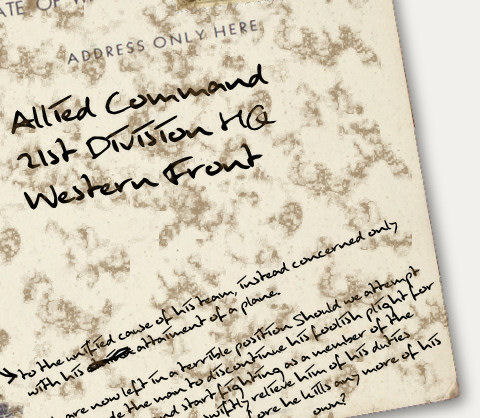 ATE OF
ADDRESS ONLY HERE
Allied Command
21st Division HQ
Western Front
to the unified cause of his team, instead concerned only
with his attainment of a plane.
are now left in a terrible position. Should we attempt
de the man to discontinue his foolish plight for
and start fighting as a member of the
relieve him of his duties
ore he kills any more of his
own?